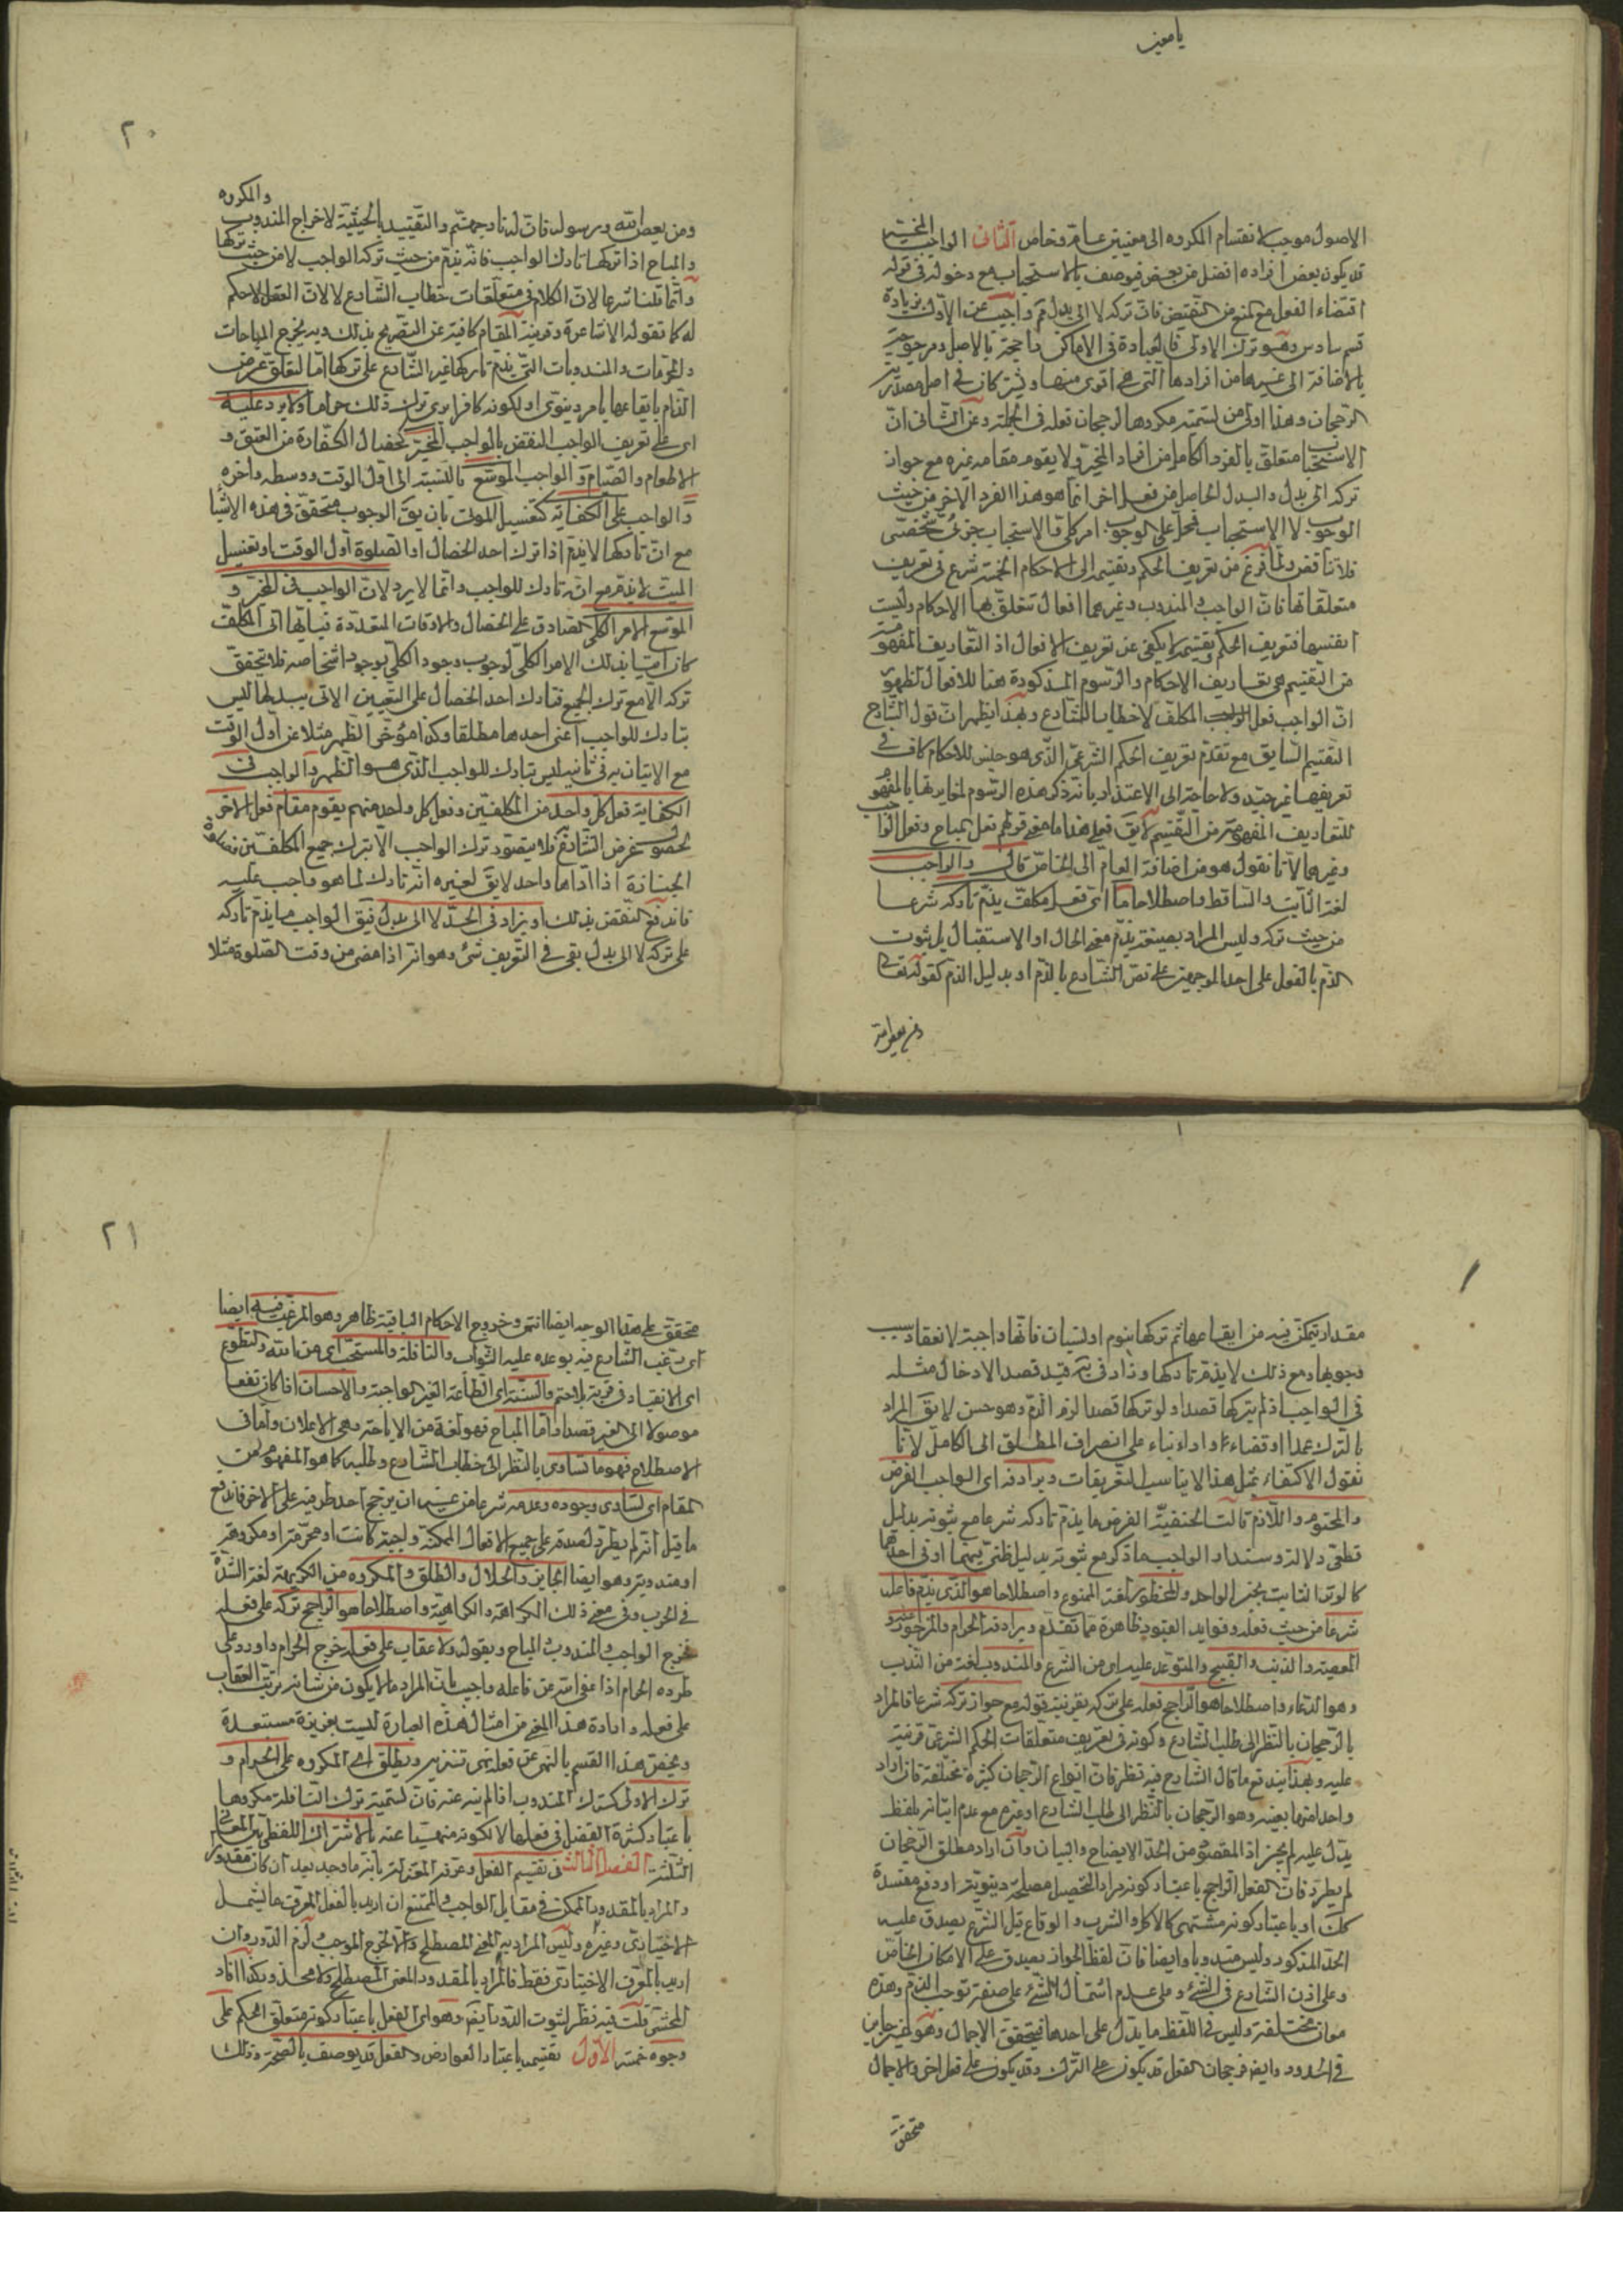 يا معين
الاصول موجب لانقسام المكروه الى معنيين عام وخاص الثانى الواجب المخير
قد يكون بعض افراده افضل من بعض فيوصف بالاستحباب مع دخوله فى قوله
اقتضاء الفعل مع المنع من النقيض فان تركه لا الى بدل واجيب عن الاول بزيادة
قسم سادس وهو ترك الاولى فالعبادة فى الاماكن راجحة بالاصل ومرجوحة
بالاضافة الى غيرها من افرادها التى هى اقوى منها وان كان فى اصل مصدر
الرجحان وهذا اولى من تسميته مكروها لرجحان فعله فى الجملة وعن الثانى ان
الاستحباب متعلق بالفرد الكامل من افراد المخير ولا يقوم مقامه غيره مع جواز
تركه الى بدل والبدل الحاصل من فعل اخر انما هو هذا الفرد الاخر من حيث
الوجوب لا الاستحباب فمحل الوجوب امر كلى والاستحباب جزئى شخصى
فلا تناقض ولما فرغ من تعريف الحكم وتقسيمه الى الاحكام الخمسة شرع فى تعريف
متعلقاتها فان الواجب والمندوب وغيرهما افعال تتعلق بها الاحكام وليست
انفسها فتعريف الحكم وتقسيمه لا يكفى عن تعريف الافعال اذ التعاريف المفهومة
من التقسيم هى تعاريف الاحكام والرسوم المذكورة هنا للافعال لظهور
ان الواجب فعل المكلف لا خطاب الشارع وبهذا يظهر ان قول الشارح
التقسيم السابق مع تقدم تعريف الحكم الشرعى الذى هو جنس للاحكام كاف فى
تعريفها غير جيد ولا حاجة الى الاعتذار بانه ذكر هذه الرسوم لمغايرتها بالمفهوم
للتعاريف المفهومة من التقسيم لا يق فعلى هذا ما معنى قولهم فعل مباح وفعل الواجب
وغيرهما لانا نقول هو من اضافة العام الى الخاص قال والواجب
لغة الثابت والساقط واصطلاحا ما اى فعل مكلف يذم تاركه شرعا
من حيث تركه وليس المراد بصيغة يذم معنى الحال او الاستقبال بل ثبوت
الذم بالفعل على احد الوجهين على نص الشارع بالذم او بدليل الذم كقوله تعالى
ومن يعص الله
٢٠
ومن يعص الله ورسوله فان له نار جهنم والتقييد بالحيثية لاخراج المندوب والمكروه
والمباح اذا تركها تارك الواجب فانه يذم من حيث تركه الواجب لا من حيث تركها
وانما قلنا شرعا لان الكلام فى متعلقات خطاب الشارع لا لان العقل لا حكم
له كما تقوله الاشاعرة وقرينة المقام كافية عن التصريح بذلك وبه يخرج المباحات
والمحرمات والمندوبات التى يذم تاركها غير الشارع على تركها اما لتعلق غرض
الذام بايقاعها بامر دينوى او لكونه كافرا يرى ترك ذلك حراما ولا يرد عليه
اى على تعريف الواجب النقض بالواجب المخير كخصال الكفارة من العتق و
الاطعام والصيام والواجب الموسع بالنسبة الى اول الوقت ووسطه واخره
والواجب على الكفاية كتغسيل الموتى بان يق الوجوب متحقق فى هذه الاشياء
مع ان تاركها لا يذم اذا ترك احد الخصال او الصلوة اول الوقت او تغسيل
الميت لا يذم مع انه تارك للواجب وانما لا يرد لان الواجب فى المخير و
الموسع الامر الكلى الصادق على الخصال والاوقات المتعددة فبايها اتى المكلف
كان اتيا بذلك الامر الكلى لوجوب وجود الكلى بوجود اشخاصه فلا يتحقق
تركه الا مع ترك الجميع فتارك احد الخصال على التعيين الاتى ببدلها ليس
بتارك للواجب اعنى احدها مطلقا وكذا مؤخر الظهر مثلا عن اول الوقت
مع الاتيان به فى ثانيه ليس بتارك للواجب الذى هو الظهر والواجب فى
الكفاية فعل كل واحد من المكلفين وفعل كل واحد منهم يقوم مقام فعل الاخر
لحصول غرض الشارع فلا يتصور ترك الواجب الا بترك جميع المكلفين فصلوة
الجنازة اذا اداها واحد لا يق لغيره انه تارك لما هو واجب عليه
فاندفع النقض بذلك او يزاد فى الحد لا الى بدل فيق الواجب ما يذم تاركه
على تركه لا الى بدل بقى فى التعريف شئ وهو انه اذا مضى من وقت الصلوة مثلا
مقدار يتمكن فيه من ايقاعها ثم تركها بنوم او نسيان فانها واجبة لانعقاد سبب
وجوبها ومع ذلك لا يذم تاركها وزاد فى قيد قصدا لادخال مثله
فى الواجب اذ لم يتركها قصدا ولو تركها قصدا لزم الذم وهو حسن لا يق المراد
بالترك عمدا او قضاء واداء بناء على انصراف المطلق الى الكامل لانا
نقول الاكتفاء بمثل هذا لا يناسب التعريفات ويرادفه اى الواجب الفرض
والمحتوم واللازم قالت الحنفية الفرض ما يذم تاركه شرعا مع ثبوته بدليل
قطعى دلالة وسندا والواجب ما ذكر مع ثبوته بدليل ظنى فيهما او فى احدهما
كالوتر الثابت بخبر الواحد والمحظور لغة الممنوع واصطلاحا هو الذى يذم فاعله
شرعا من حيث فعله وفوايد القيود ظاهرة مما تقدم ويرادفه الحرام والمزجور عنه و
المعصية والذنب والقبيح والمتوعد عليه اى من الشرع والمندوب لغة من الندب
وهو الدعاء واصطلاحا هو الراجح فعله على تركه بقرينة قوله مع جواز تركه شرعا فالمراد
بالرجحان بالنظر الى طلب الشارع وكونه فى تعريف متعلقات الحكم الشرعى قرينة
عليه وبهذا يندفع ما قال الشارح فيه نظر فان انواع الرجحان كثيرة مختلفة فان اراد
واحدا منها بعينه وهو الرجحان بالنظر الى طلب الشارع او غيره مع عدم اتيانه بلفظ
يدل عليه لم يجز اذ المقصود من الحد الايضاح والبيان وان اراد مطلق الرجحان
لم يطرد فان الفعل الراجح باعتبار كونه مرادا لتحصيل مصلحة دينوية او دفع مفسدة
كك او باعتبار كونه مشتهى كالاكل والشرب والوقاع قبل الشرع يصدق عليه
الحد المذكور وليس مندوبا وايضا فان لفظ الجواز يصدق على الامكان الخاص
وعلى اذن الشارع فى الشئ وعلى عدم اشتمال الشئ على صفة توجب الذم وهذه
معان مختلفة وليس فى اللفظ ما يدل على احدها فيتحقق الاجمال وهو غير جايز
فى الحدود وايضا فرجحان الفعل قد يكون على الترك وقد يكون على فعل اخر والاجمال
متحقق
٢١
متحقق على هذا الوجه ايضا انتهى وخروج الاحكام الباقية ظاهر وهو المرغب فيه ايضا
اى رغب الشارع فيه بوعده عليه الثواب والنافلة والمستحب اى من الله والتطوع
اى الانقياد فى قربة بلا حتم والسنة اى الطاعة الغير الواجبة والاحسان اذا كان نفعا
موصولا الى الغير قصدا واما المباح فهو لغة من الاباحة وهى الاعلان واما فى
الاصطلاح فهو ما تساوى بالنظر الى خطاب الشارع وطلبه كما هو المفهوم من
المقام اى تساوى وجوده وعدمه شرعا من غير ان يرجح احد طرفيه على الاخر فاندفع
ما قيل انه لم يطرد لصدقه على جميع الافعال الممكنة واجبة كانت او محرمة او مكروهة
او مندوبة وهو ايضا الجايز والحلال والطلق والمكروه من الكريهة لغة الشدة
فى الحرب وفى معنى ذلك الكراهة والكراهية واصطلاحا هو الراجح تركه على فعله
فخرج الواجب والمندوب والمباح وبقوله ولا عقاب على فعله خرج الحرام واورد على
طرده الحرام اذا عفى الله عن فاعله واجيب بان المراد ما لا يكون من شانه ترتب العقاب
على فعله وارادة هذا المعنى من امثال هذه العبارة ليست بغريزة مستبعدة
ويختص هذا القسم بالنهى عن فعله نهى تنزيه ويطلق اى المكروه على الحرام و
ترك الاولى كترك المندوب اذا لم ينه عنه فان تسمية ترك النافلة مكروها
باعتبار كثرة الفضل فى فعلها لا لكونه منهيا عنه بالاشتراك اللفظى بين المعانى
الثلثة الفصل الثالث فى تقسيم الفعل وعرفه المعتزلة بانه ما وجد بعد ان كان مقدورا
والمراد بالمقدور الممكن فى مقابل الواجب والممتنع ان اريد بالفعل المعرف ما يشمل
الاختيارى وغيره وليس المراد به المعنى المصطلح والا لخرج الموجب ولزم الدور وان
اريد بالمعرف الاختيارى فقط فالمراد بالمقدور المعنى المصطلح ولا محذور كذا افاد
المحشى قلت فيه نظر لثبوت الدور تأمل وهو اى الفعل باعتبار كونه متعلق الحكم على
وجوه خمسة الاول تقسيمه باعتبار العوارض والفعل قد يوصف بالصحة وذلك